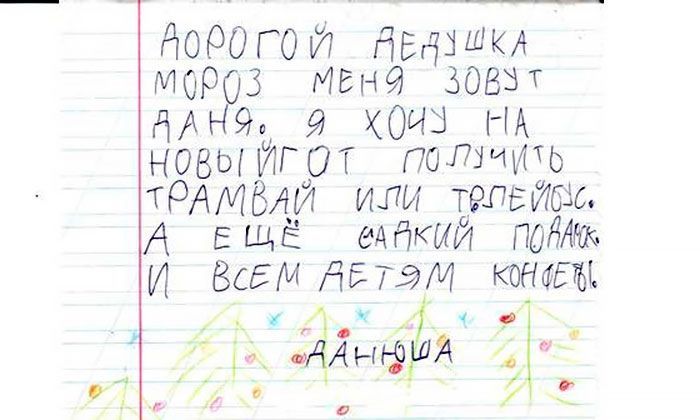 ДОРОГОЙ ДЕДУШКА
МОРОЗ МЕНЯ ЗОВУТ
ДАНЯ. Я ХОЧУ НА
НОВЫЙГОТ ПОЛУЧИТЬ
ТРАМВАЙ ИЛИ ТРЛЕЙБУС.
А ЕЩЁ САДКИЙ ПОДАРОК.
И ВСЕМ ДЕТЯМ КОНФЕТЫ.
ДАНЮША